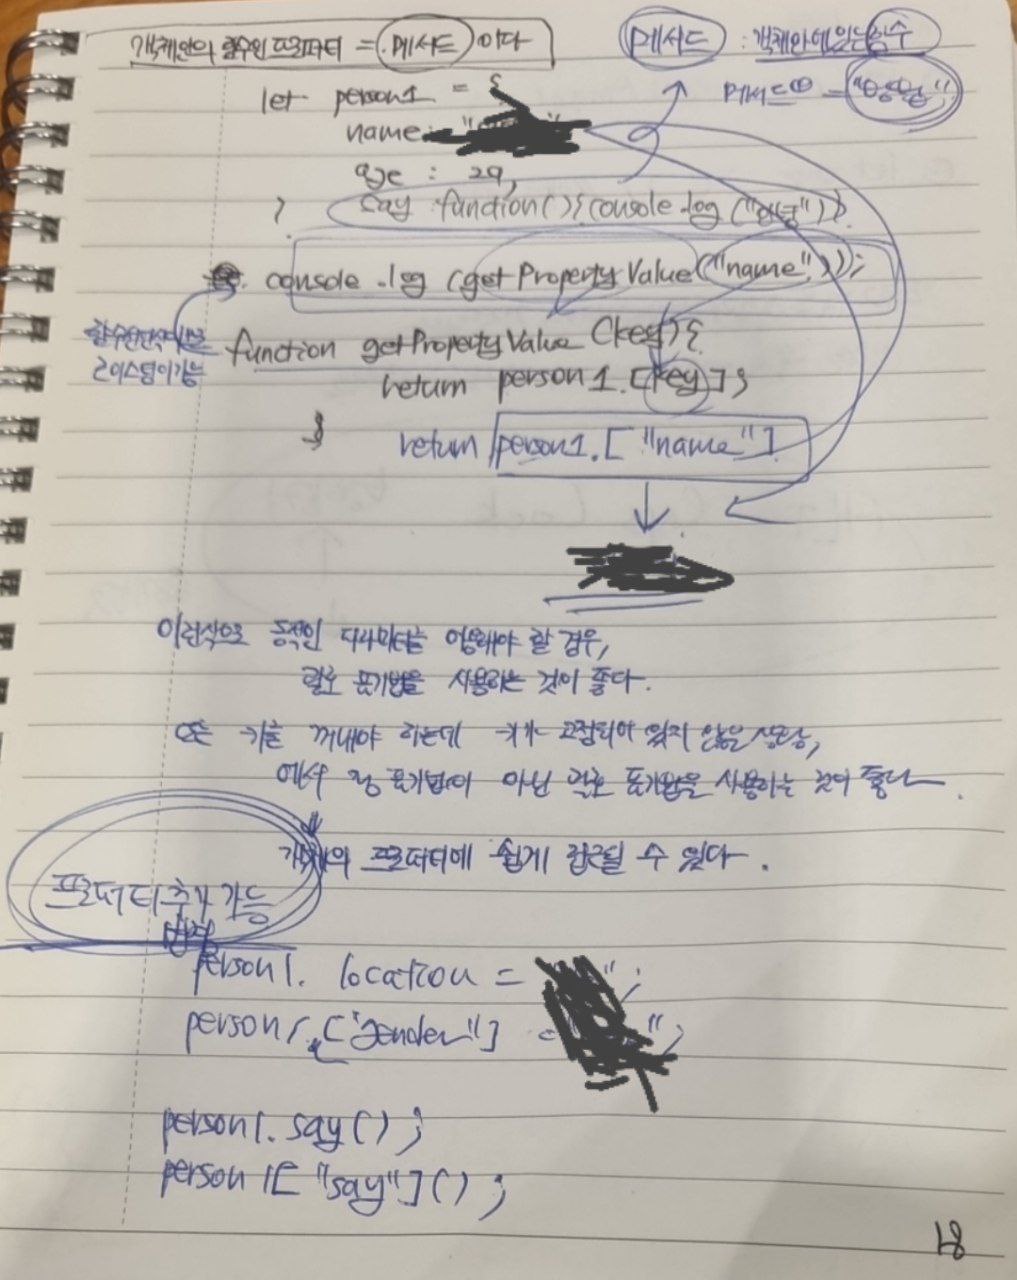 객체안의 함수인 프로퍼티 = 메서드 이다
메서드 : 객체안에 있는 함수
메서드 =
let person1 = {
name:
age : 29,
say : function(){console.log("안녕")}
}
console.log (get Property Value ("name"));
호이스팅이 가능
function getProperty Value (key){
return person1.[key];
}
return person1.["name"]
이런식으로 동적인 파라미터를 이용해야 할 경우,
괄호 표기법을 사용하는 것이 좋다.
또는 키를 꺼내야 하는데 키가 고정되어 있지 않은 상황,
에서 점 표기법이 아닌 괄호 표기법을 사용하는 것이 좋다.
객체의 프로퍼티에 쉽게 접근될 수 있다.
프로퍼티 추가 가능
person1. location = ";
person1.["gender"] ";
person1. say();
person1["say"]();